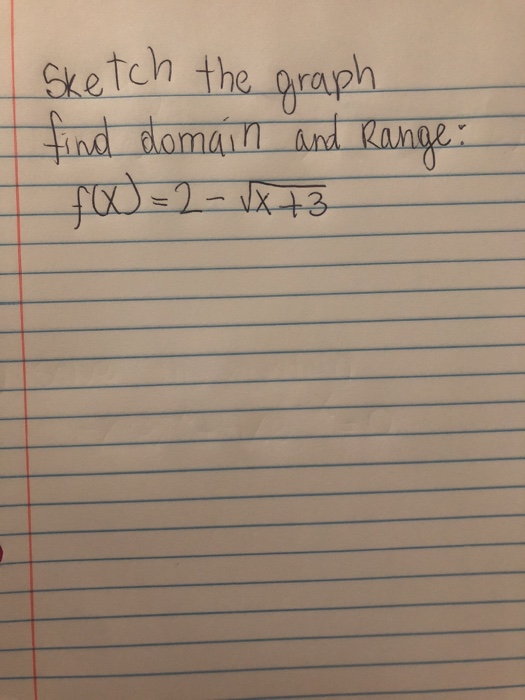 Sketch the graph
find domain and Range:
f(x) = 2 - √x+3